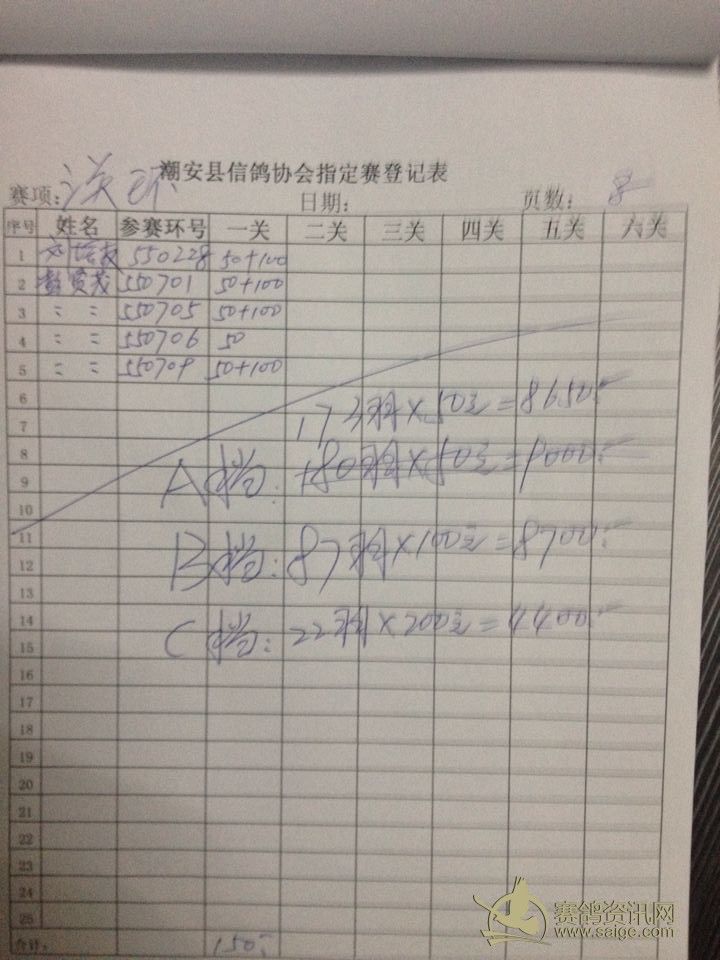 潮安县信鸽协会指定赛登记表
赛项: 环 日期: 页数: 8
序号 姓名 参赛环号 一关 二关 三关 四关 五关 六关
1 550228 50+100
2 贤茂 550701 50+100
3 〃 〃 550705 50+100
4 〃 〃 550706 50
5 〃 〃 550709 50+100
6
173羽×50元=8650.-
7
8
A档: 180羽×50元=9000.-
9
10
11
B档: 87羽×100元=8700.-
12
13
14
C档: 22羽×200元=4400.-
15
16
17
18
19
20
21
22
23
24
25
合计:
赛鸽资讯网
www.saige.com